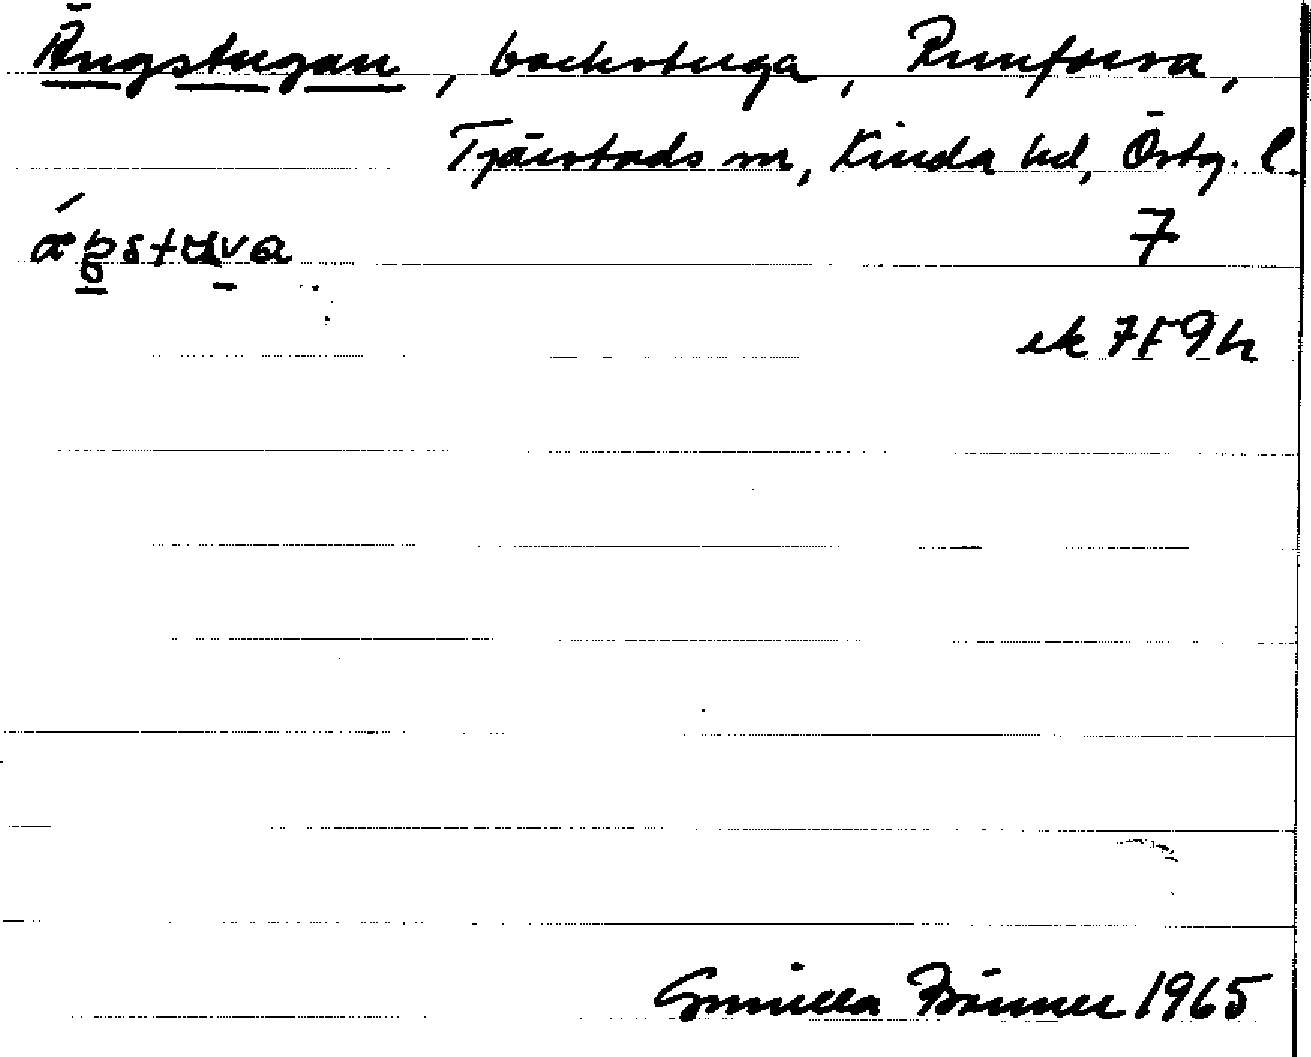 Ängstugan, backstuga, Runforsa,
Tjärstads sn, Kinda hd, Östg. l.
7
ek 7F9h
Gunilla 1965